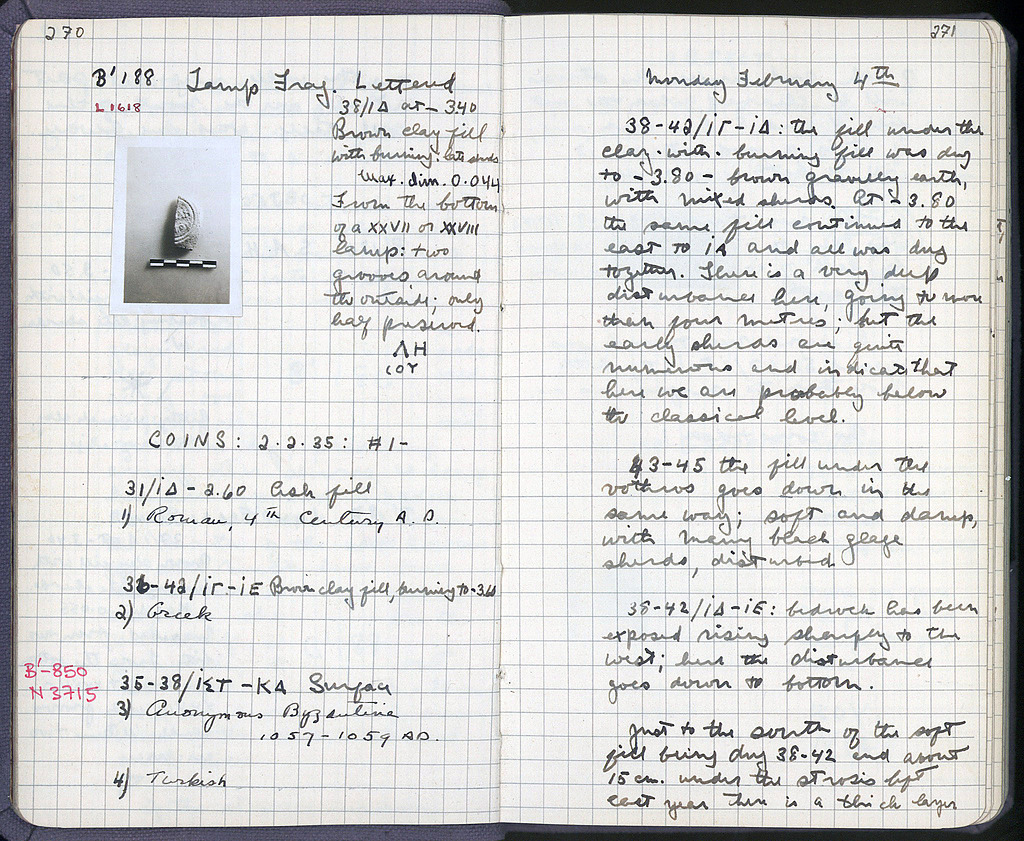 270
B' 188 Lamp Frag. Lettered
L 1618
38/ΙΔ at - 3.40
Brown clay fill
with burning: late sherds
Max. dim. 0.044
From the bottom
of a XXVII or XXVIII
lamp: two
grooves around
the outside; only
half preserved.
ΛΗ
ΟΥ
COINS: 2.2.35: #1-
31/ΙΔ - 2.60 Ash fill
1) Roman, 4th Century A.D.
36-42/ΙΓ-ΙΕ Brown clay fill, burning to -3.60
2) Greek
B'-850
N 3715
35-38/ΙΣΤ-ΚΑ Surface
3) Anonymous Byzantine
1057-1059 AD.
4) Turkish
271
Monday February 4th
38-42/ΙΓ-ΙΔ: the fill under the
clay-with-burning fill was dug
to -3.80 - brown gravelly earth,
with mixed sherds. At -3.80
the same fill continued to the
east to ΙΔ and all was dug
together. There is a very deep
disturbance here, going to more
than four metres; but the
early sherds are quite
numerous and indicate that
here we are probably below
the classical level.
43-45 the fill under the
vothros goes down in the
same way; soft and damp,
with many black glaze
sherds, disturbed
38-42/ΙΔ-ΙΕ: bedrock has been
exposed rising sharply to the
west; here the disturbance
goes down to bottom.
Just to the south of the soft
fill being dug 38-42 and about
15 cm. under the strosis left
last year there is a thick layer